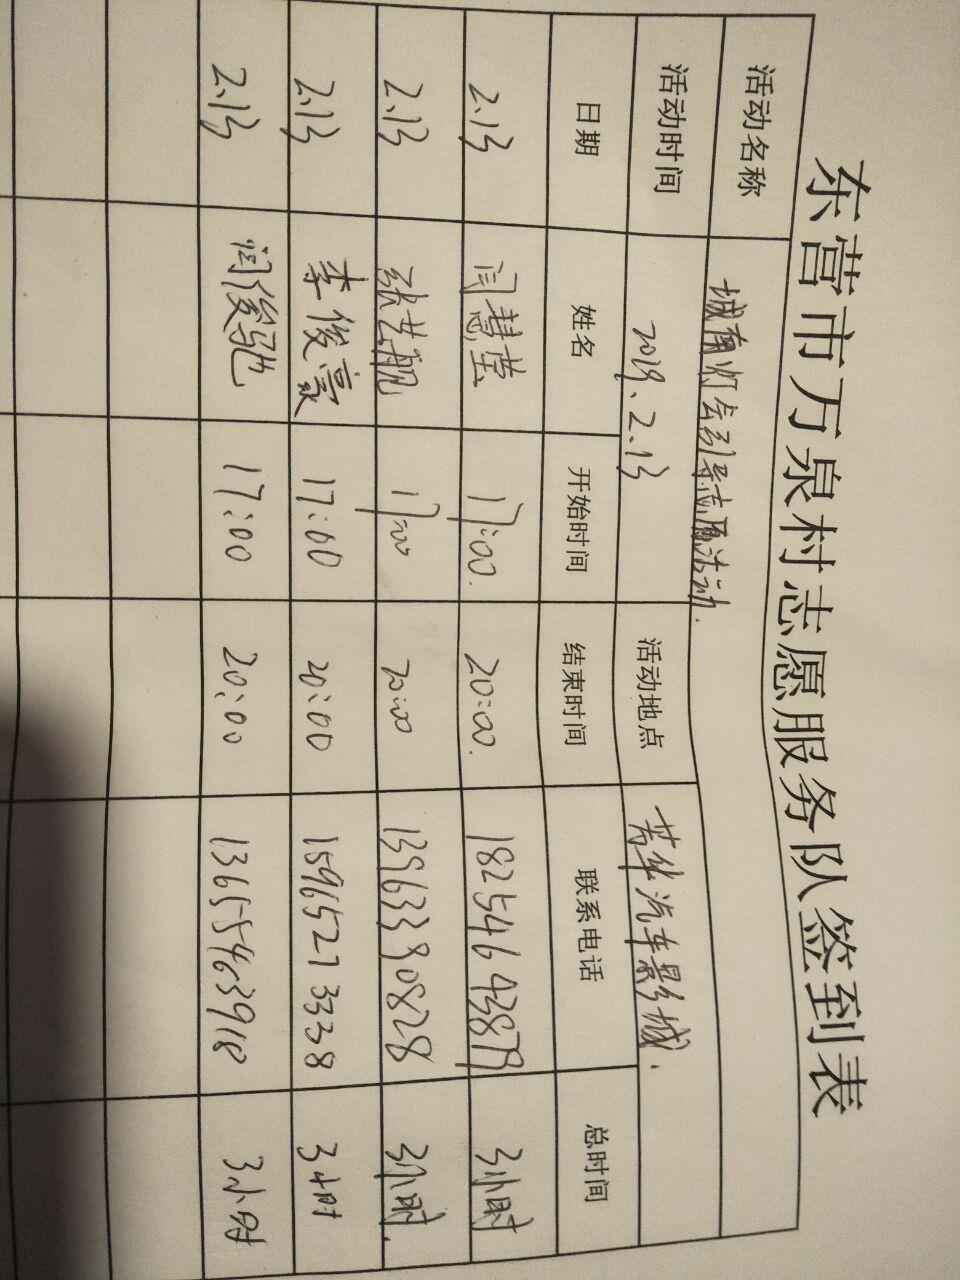 东营市万泉村志愿服务队签到表
活动名称 城南灯会引导志愿活动.
活动时间 2019.2.13 活动地点 芳华汽车影城.
日期 姓名 开始时间 结束时间 联系电话 总时间
2.13 闫慧莹 17:00. 20:00. 18254643879 3小时
2.13 张艺舰 17:00 20:00 13963390828 3小时.
2.13 李俊豪 17:00 20:00 15965213338 3小时
2.13 闫俊驰 17:00 20:00 13655463918 3小时